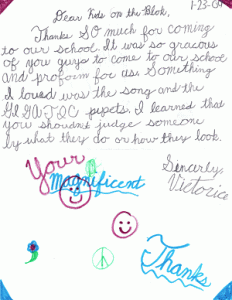 1-23-04
Dear Kids on the Blok,
Thanks SO much for coming
to our school. It was so gracous
of you guys to come to our school
and proform for us. Something
I loved was the song and the
GIGANTIC pupets. I learned that
you shouldn't judge someone
by what they do or how they look.
Sincerly,
Victoria
Your
Magnificent
Thanks